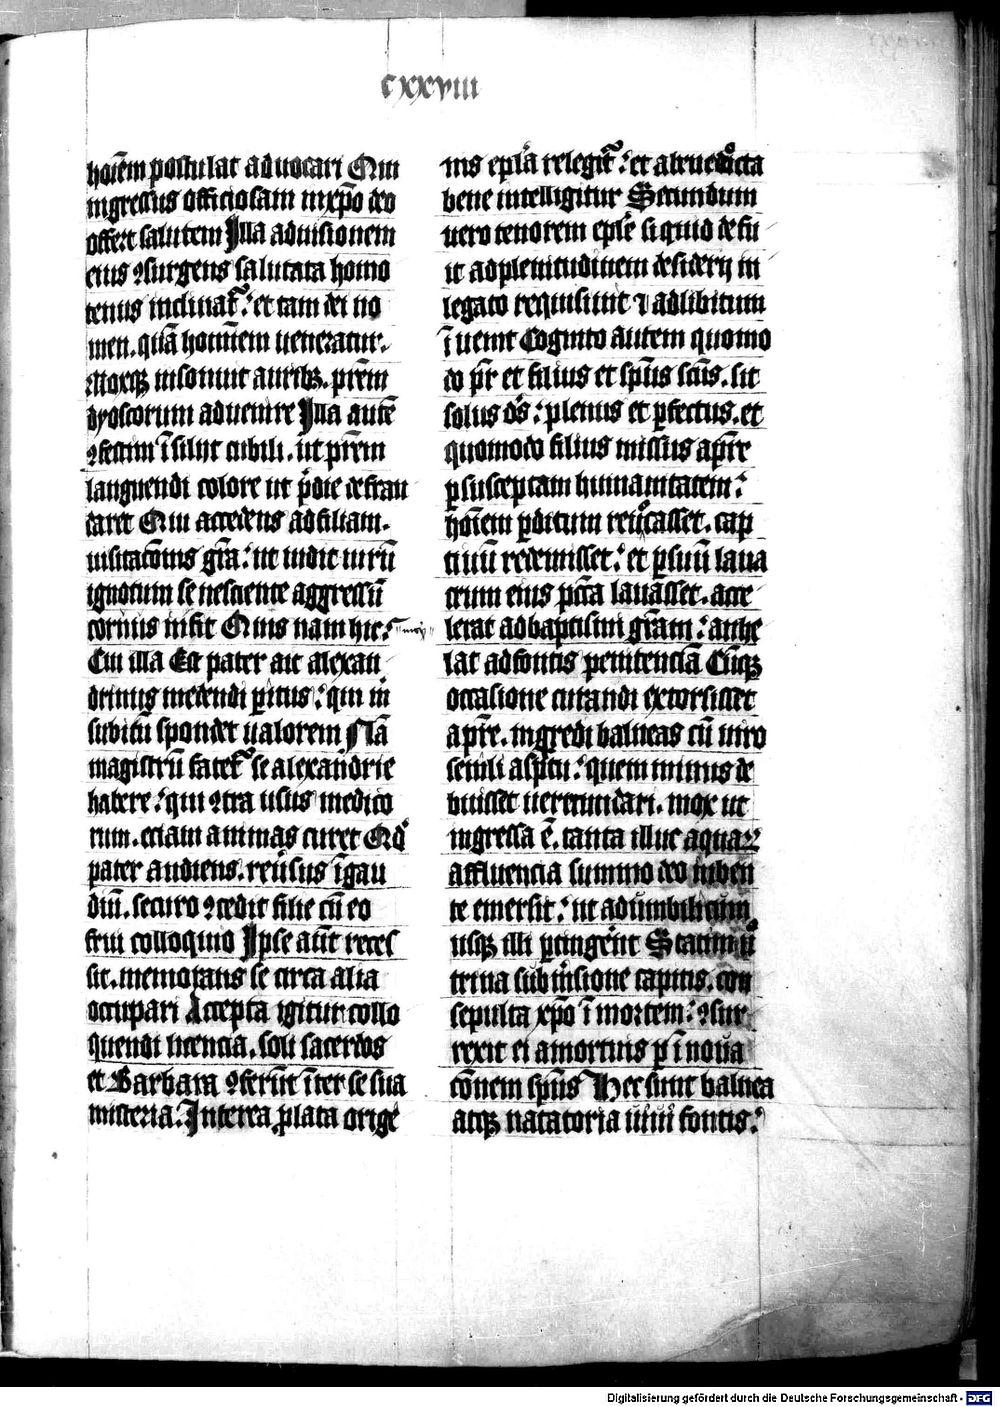 cxxviii
hoiēm postulat aduocari Qui
ingressus officiosam in xp̄o deo
offert salutem Illa aduisionem
eius ꝯsurgens salutata homo
tenus inclinat᷑. et tam dei no
men. quā hominem ueneratur.
Moxqꝫ insonuit auribꝫ. prēm
dyoscorum aduenire Illa autē
ꝯfestim īsilijt cubili. ut prēm
languendi colore ut
daret Qui accedens ad filiam.
uisitacōnis grā. ut uidit uirū
ignotum se nesciente aggressū
coruus infit Quis nam hic.
Cui illa Est pater ait alexan
drinus medendi ꝑitus. qui in
subitū spondet ualorem Nā
magistrū fatet᷑ se alexandrie
habere. qui ꝯtra usus medico
rum. eciam animas curet Qd̄
pater audiens. reuersus ī gau
diū. securo ꝯcedit filie cū eo
frui colloquio Ipse aūt reces
sit. memorans se circa alia
occupari Accepta igitur collo
quendi licencia. soli sacerdos
et Barbara ꝯserūt īter se sua
misteria. Interea ꝓlata orige
nis epl̄a relegit᷑. et abruedocta
bene intelligitur Secundum
uero tenorem epl̄e siquid defu
it ad plenitudinem desiderij in
legato requisiuit ⁊ ad libitum
īuenit Cognito autem quomo
do pr̄ et filius et spūs scūs. sit
solus ds̄. plenus et ꝑfectus. et
quomodo filius missus a pr̄e
ꝑ susceptam humanitatem.
hoīem ꝑditum reuocasset. cap
tiuū redemisset. et ꝑ suū laua
crum eius pctā lauasset. acce
lerat ad baptismi grām. anhe
lat ad fontis penitenciā Cūqꝫ
occasione curandi extorsisset
a pr̄e. ingredi balneas cū uiro
senili aspctu. quem minus de
buisset uerecundari. mox ut
ingressa ē. tanta illuc aquaꝝ
affluencia summo deo iuben
te emersit. ut ad umbilicum
usqꝫ illi ꝑtingeret Statim ū
trina submersione capitis. con
sepulta xp̄o ī mortem. ꝯsur
rexit ei a mortuis ꝑ ī noua
cōnem spūs Hec sunt balnea
atqꝫ natatoria uiui fontis.
Digitalisierung gefördert durch die Deutsche Forschungsgemeinschaft - DFG